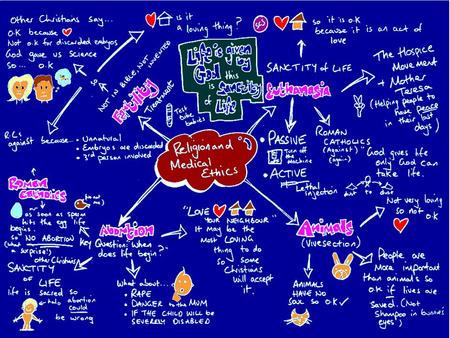 Other Christians say...
O.K because
Not o.k for discarded embryos
God gave us Science
so... o.k
is it
a loving thing?
NOT IN BIBLE, NOT INVENTED
Fertility
Treatment
Test
tube
babies
R.C's
against because...
• Unnatural
• Embryos are discarded
• 3rd person involved
Life is given
by
God
this
is SANCTITY
of
Life
so it is ok
because it is an act of
love
SANCTITY of LIFE
Euthanasia
The Hospice
Movement
+ Mother
Teresa
(Helping people to
have peace
in their last
days)
• PASSIVE
Turn off
the
machine
• ACTIVE
Lethal
injection
ROMAN
CATHOLICS
(Against)
(again)
"God gives life
only God can
take life.
dust to dust
Religion and
Medical
Ethics
Roman
Catholics
as soon as sperm
hits the egg life
begins.
so NO ABORTION
(what
a surprise!)
SANCTITY
of
LIFE
life is sacred so
abortion
could
be wrong
other Christians
key
Abortion
Question: when
does life begin?
What about...
• RAPE
• DANGER to the MUM
• IF THE CHILD WILL BE
SEVERELY DISABLED
"LOVE
YOUR NEIGHBOUR"
It may be the
most LOVING
thing to do
so some
Christians
will accept
it.
Animals
(Vivesection)
Not very loving
so not
o.k
ANIMALS
HAVE NO
SOUL SO O.K
People are
more important
than animals so
OK if lives are
saved. (Not
Shampoo in bunnies
eyes)